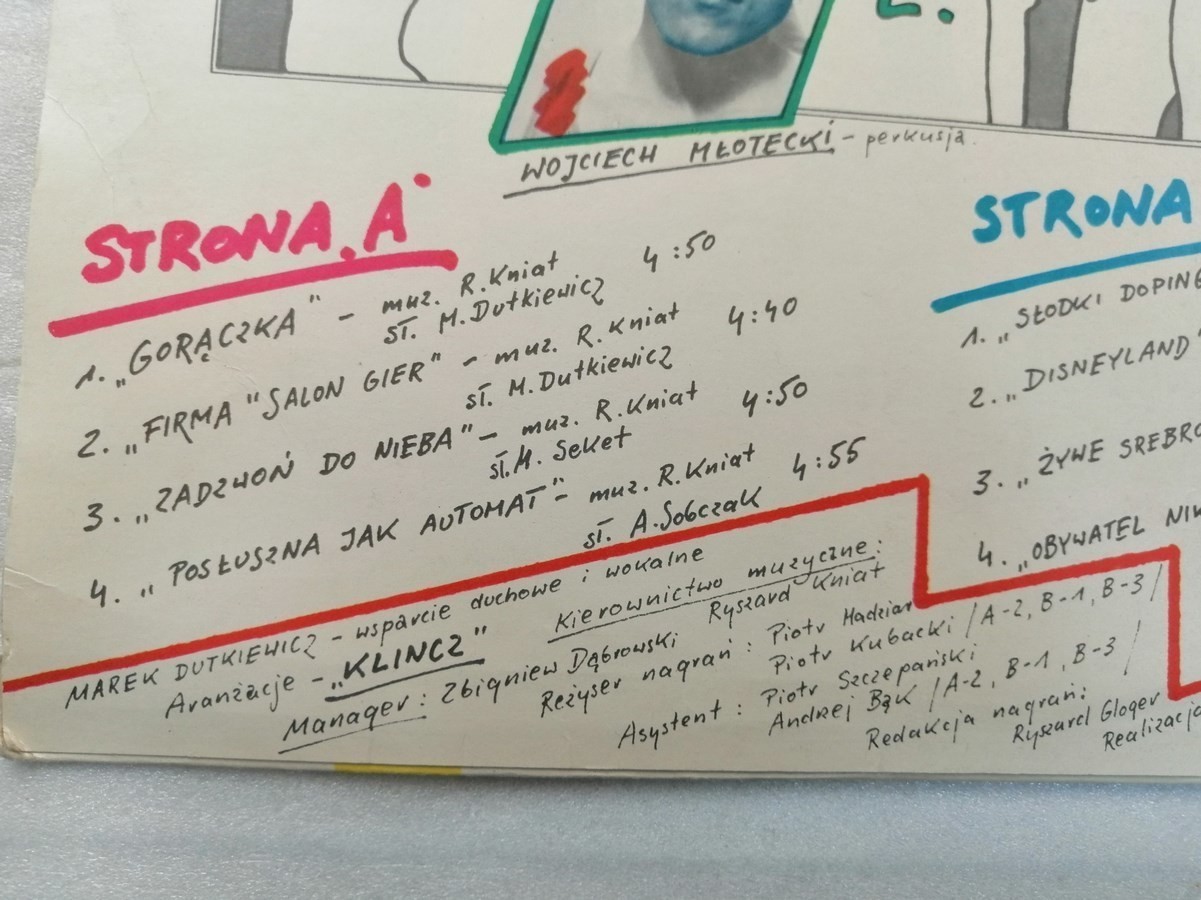 WOJCIECH MŁOTECKI - perkusja.
STRONA „A”
1. „GORĄCZKA” - muz. R. Kniat 4:50
sł. M. Dutkiewicz
2. „FIRMA "SALON GIER" - muz. R. Kniat 4:40
sł. M. Dutkiewicz
3. „ZADZWOŃ DO NIEBA” - muz. R. Kniat 4:50
sł. M. Seket
4. „POSŁUSZNA JAK AUTOMAT” - muz. R. Kniat 4:55
sł. A. Sobczak
STRONA
1. „SŁODKI DOPING
2. „DISNEYLAND”
3. „ŻYWE SREBRO
4. „OBYWATEL NIK
MAREK DUTKIEWICZ - wsparcie duchowe i wokalne
Aranżacje - „KLINCZ”
Kierownictwo muzyczne:
Ryszard Kniat
Manager: Zbigniew Dąbrowski
Reżyser nagrań: Piotr Madziar
Piotr Kubacki /A-2, B-1, B-3/
Asystent: Piotr Szczepański
Andrzej Bąk /A-2, B-1, B-3/
Redakcja nagrań:
Ryszard Gloger
Realizacja